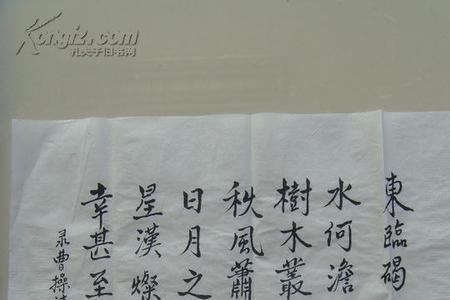 Kongfz.com
孔夫子旧书网
東臨碣
水何澹
樹木叢
秋風蕭
日月之
星漢燦
幸甚至
录曹操